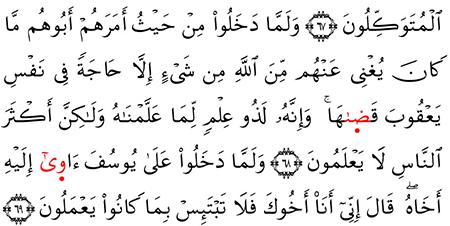 ٱلْمُتَوَكِّلُونَ ﴿٦٧﴾ وَلَمَّا دَخَلُوا۟ مِنْ حَيْثُ أَمَرَهُمْ أَبُوهُم مَّا
كَانَ يُغْنِى عَنْهُم مِّنَ ٱللَّهِ مِن شَىْءٍ إِلَّا حَاجَةً فِى نَفْسِ
يَعْقُوبَ قَضَىٰهَا ۚ وَإِنَّهُۥ لَذُو عِلْمٍ لِّمَا عَلَّمْنَٰهُ وَلَٰكِنَّ أَكْثَرَ
ٱلنَّاسِ لَا يَعْلَمُونَ ﴿٦٨﴾ وَلَمَّا دَخَلُوا۟ عَلَىٰ يُوسُفَ ءَاوَىٰٓ إِلَيْهِ
أَخَاهُ ۖ قَالَ إِنِّىٓ أَنَا۠ أَخُوكَ فَلَا تَبْتَئِسْ بِمَا كَانُوا۟ يَعْمَلُونَ ﴿٦٩﴾